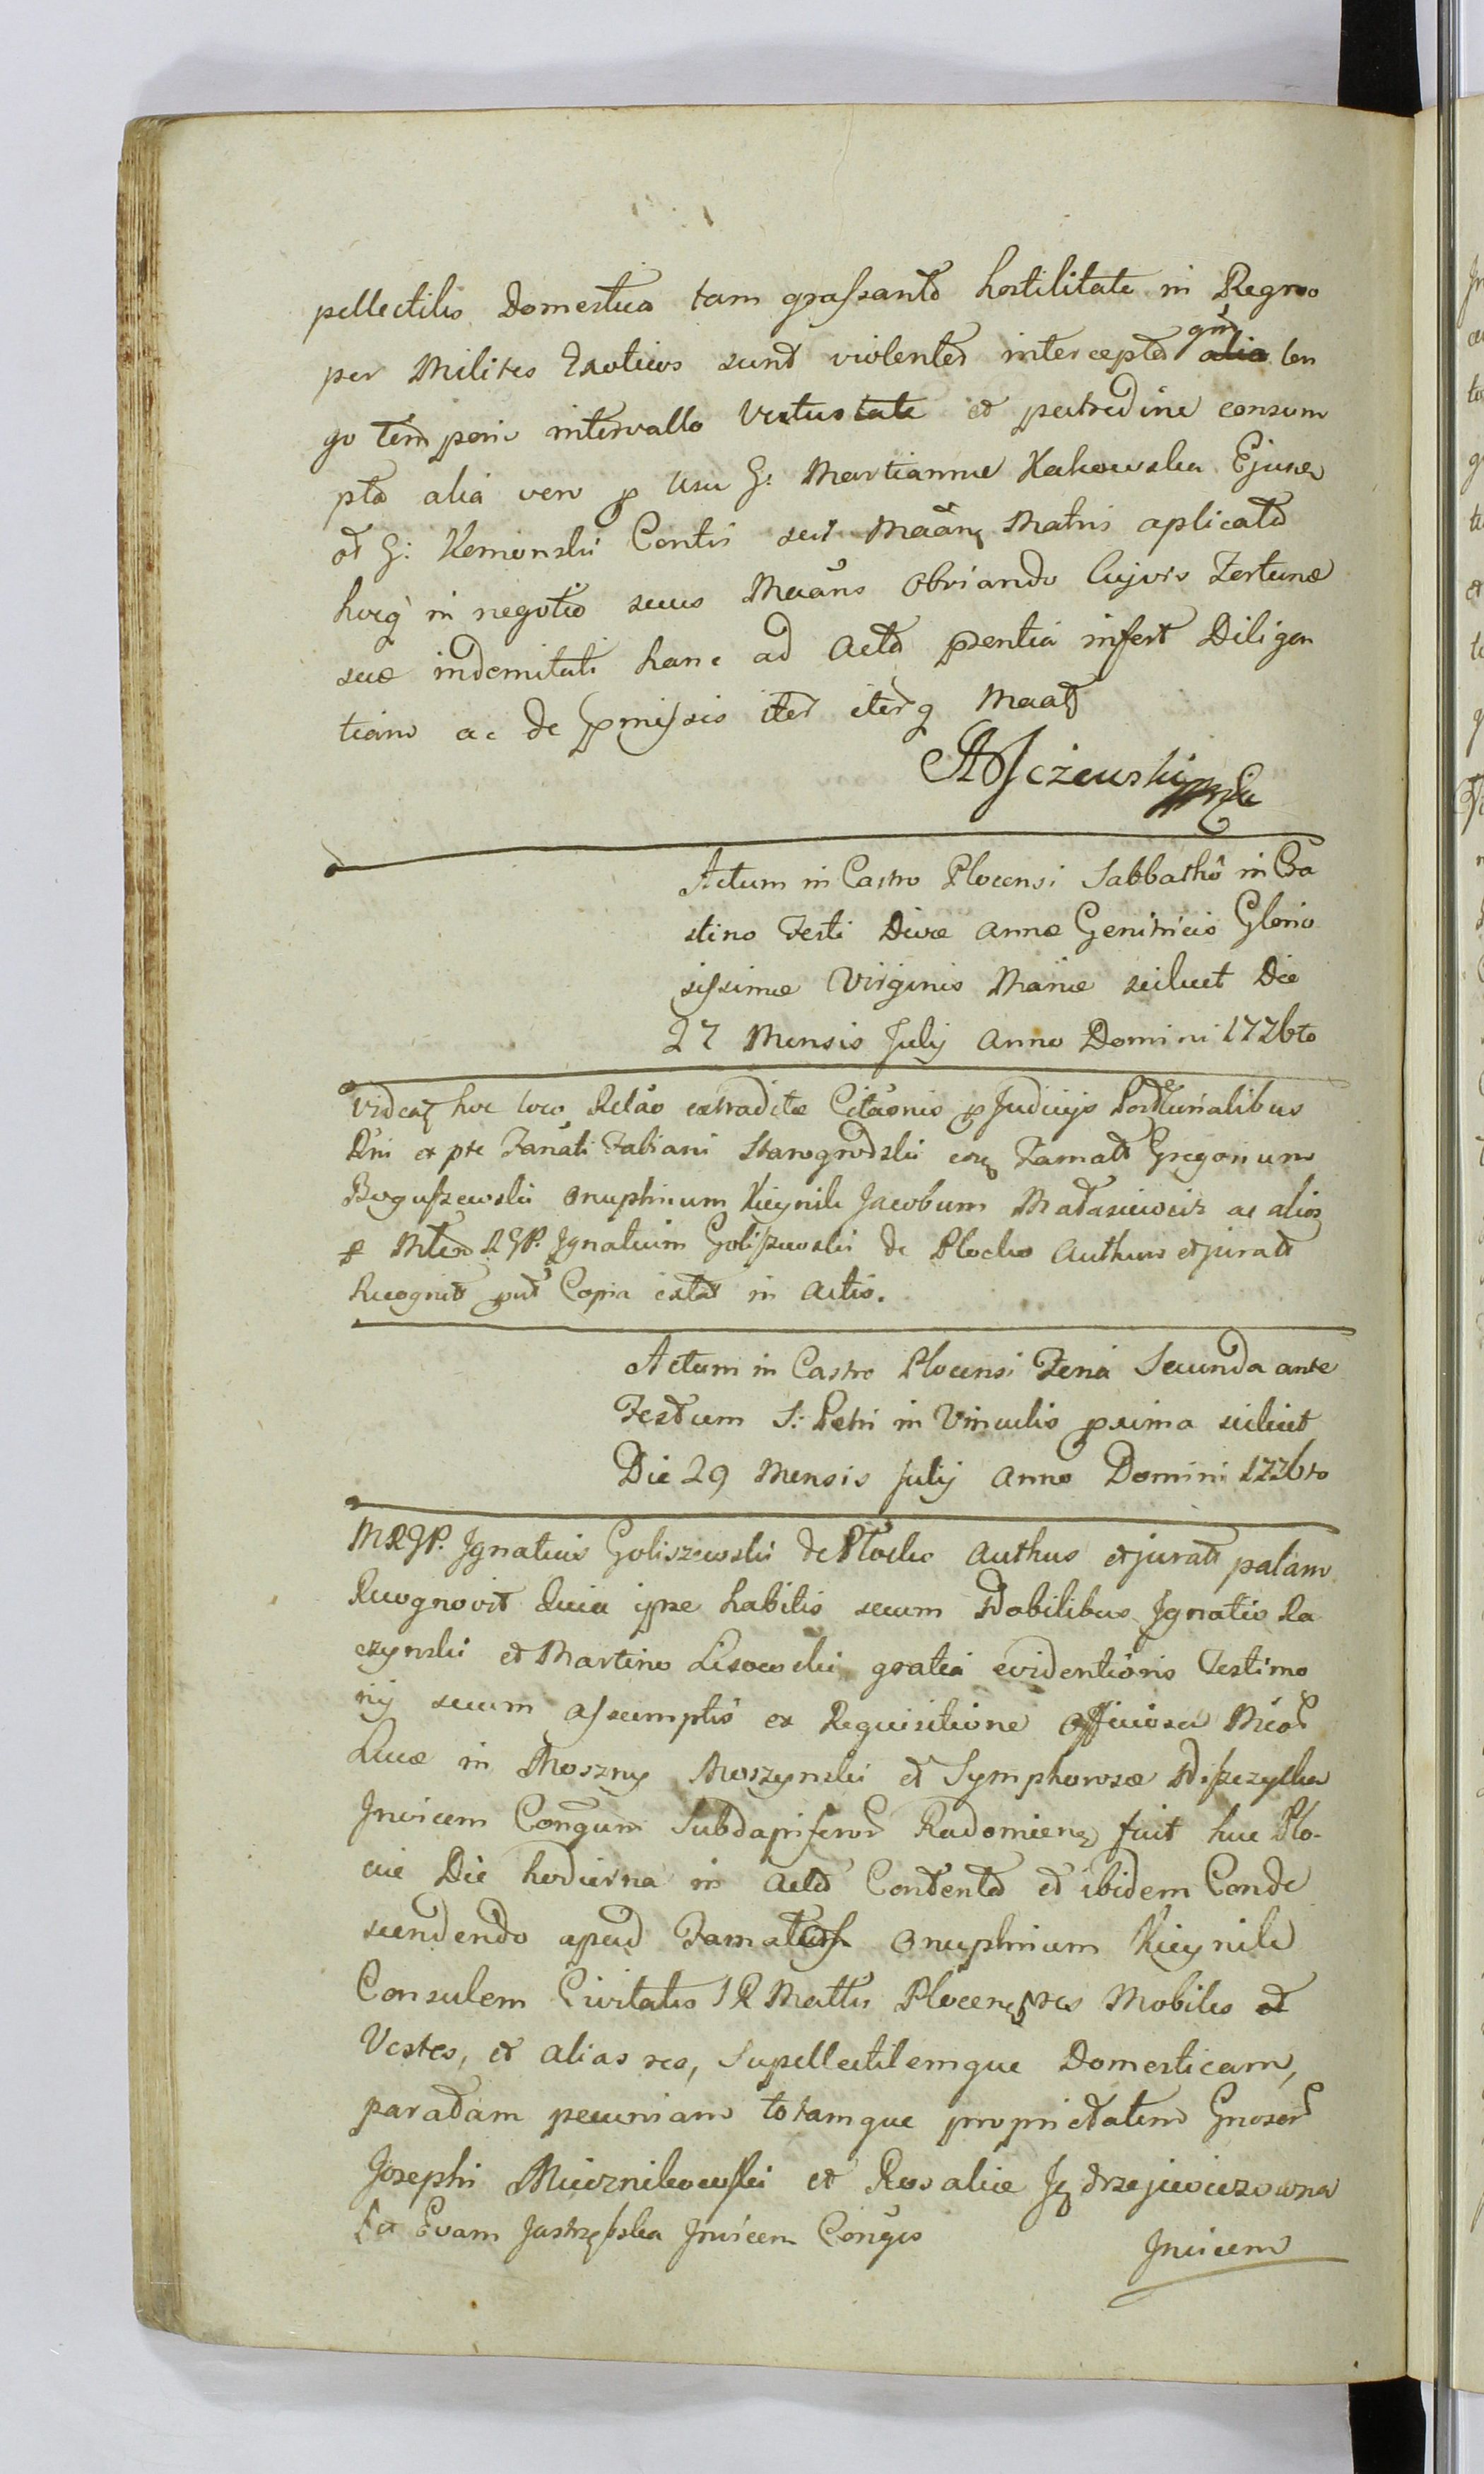 pellectilis Domestica tam grassantē hostilitate in Regno
per Milites Exoticos sunt violenter intercepta qm̄ alia lon
go temporis intervallo Vetustate et putredine consum
pta alia vero p usu G: Martianne Kakowska Ejusq
et G: Kemonski Contis sui Maāns Matris aplicatā
hocq in negotio suus Maāns Obviando Cujvis Fortunæ
suæ indemnitati hanc ad Acta pñsentia infert Diligen
tiam ac de pmissis iter iterq Maats
Actum in Castro Plocensi Sabbathô in Cra
stino Festi Divæ Annæ Genitricis Glorio
sissimæ Virginis Mariæ scilicet Die
27 Mensis Julij Anno Domini 1776to
Videatz hoc loco Relāo extraditæ Citāonis p Judicijs Postcurialibus
Rñi ex pte Fanāti Fabiani Starogrodzki cōz Famatū Gregorium
Boguszewski Onuphrium Kieynik Jacobum Matasiewicz ac alios
p Mtrm RGP. Ignatium Goliszewski de Plocko Authum et jurat
Recognit put Copia extat in Actis.
Actum in Castro Plocensi Feria Secunda ante
Festum S: Petri in Vinculis pxima scilicet
Die 29 Mensis Julij Anno Domini 1776to
MRGP. Ignatius Goliszewski de Płocko Authus et jurats palam
Recognovit Quia ipse habitis secum Nobilibus Ignatio Ra
czynski et Martino Lisowski gratia evidentioris Testimo
nij secum assumptis ex Requisitione Officiosa Mcor
Lucæ in Moszny Moszynski et Symphorosæ Niszczycka
Invicem Conĝum Subdapiferor Radomiens fuit huc Plo-
ciæ Die hodierna in Actū Contentū et ibidem Conde
scendendo apud Famatum Onuphrium Kieynik
Consulem Civitatis SRMattis Plocens res Mobiles et
Vestes, et alias res, Supellectilemque Domesticam,
paratam pecuniam totamque proprietatem Gnosor
Josephi Miecznikowski et Rosaliæ Jędrzejewiczowna
Et Evam Jastrzębska Invicem Conĝes
Invicem